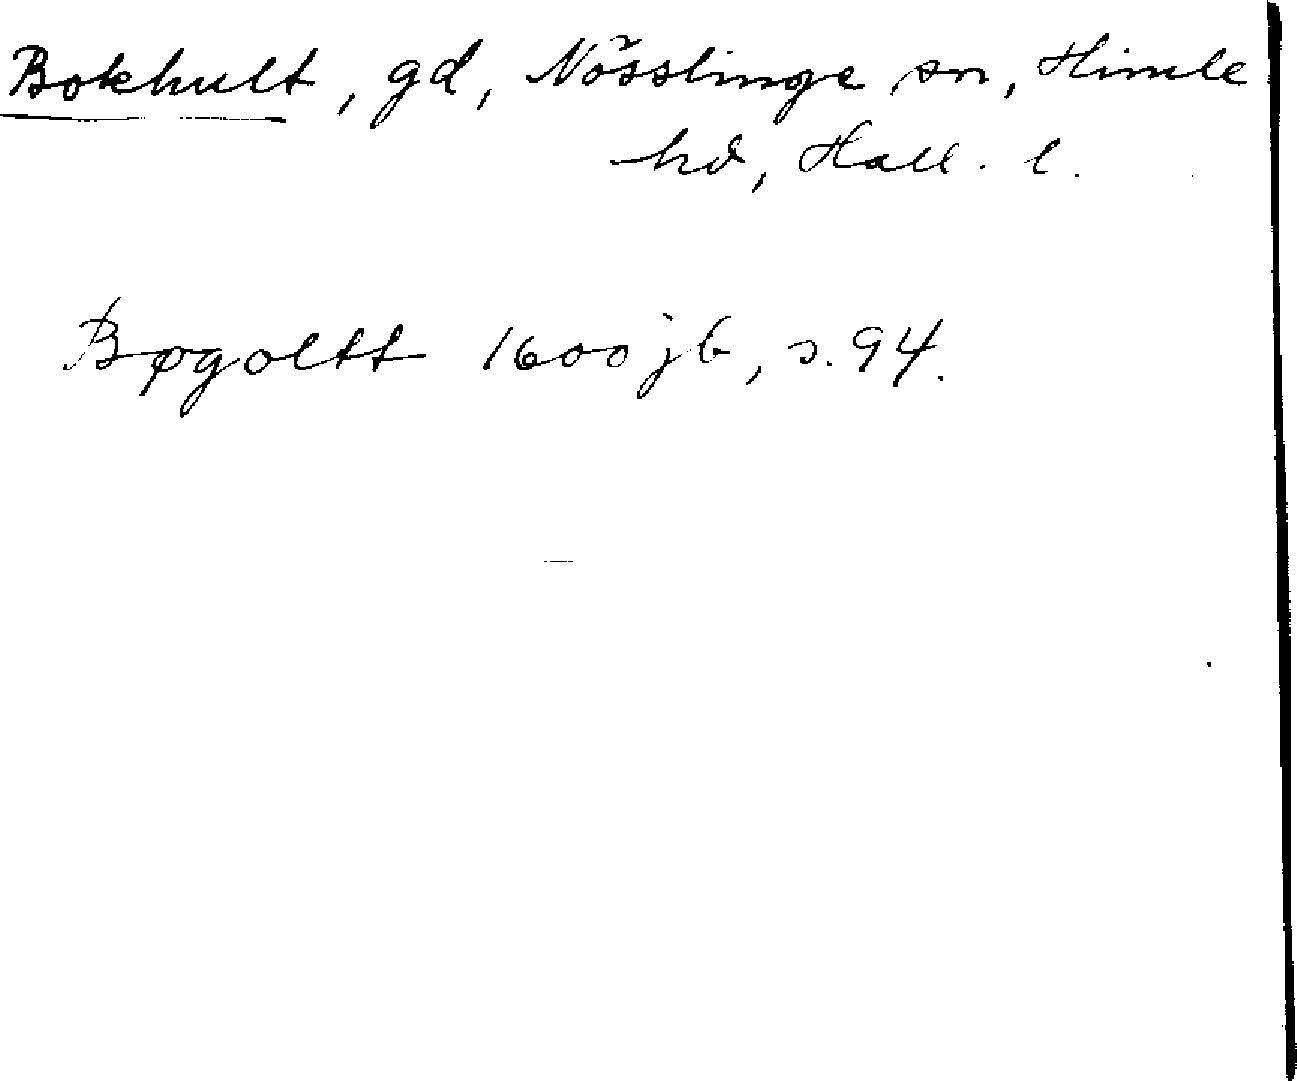 Bokhult, gd, Nösslinge sn, Himle
hd, Hall. l.
Bøgoltt 1600 jb, s. 94.